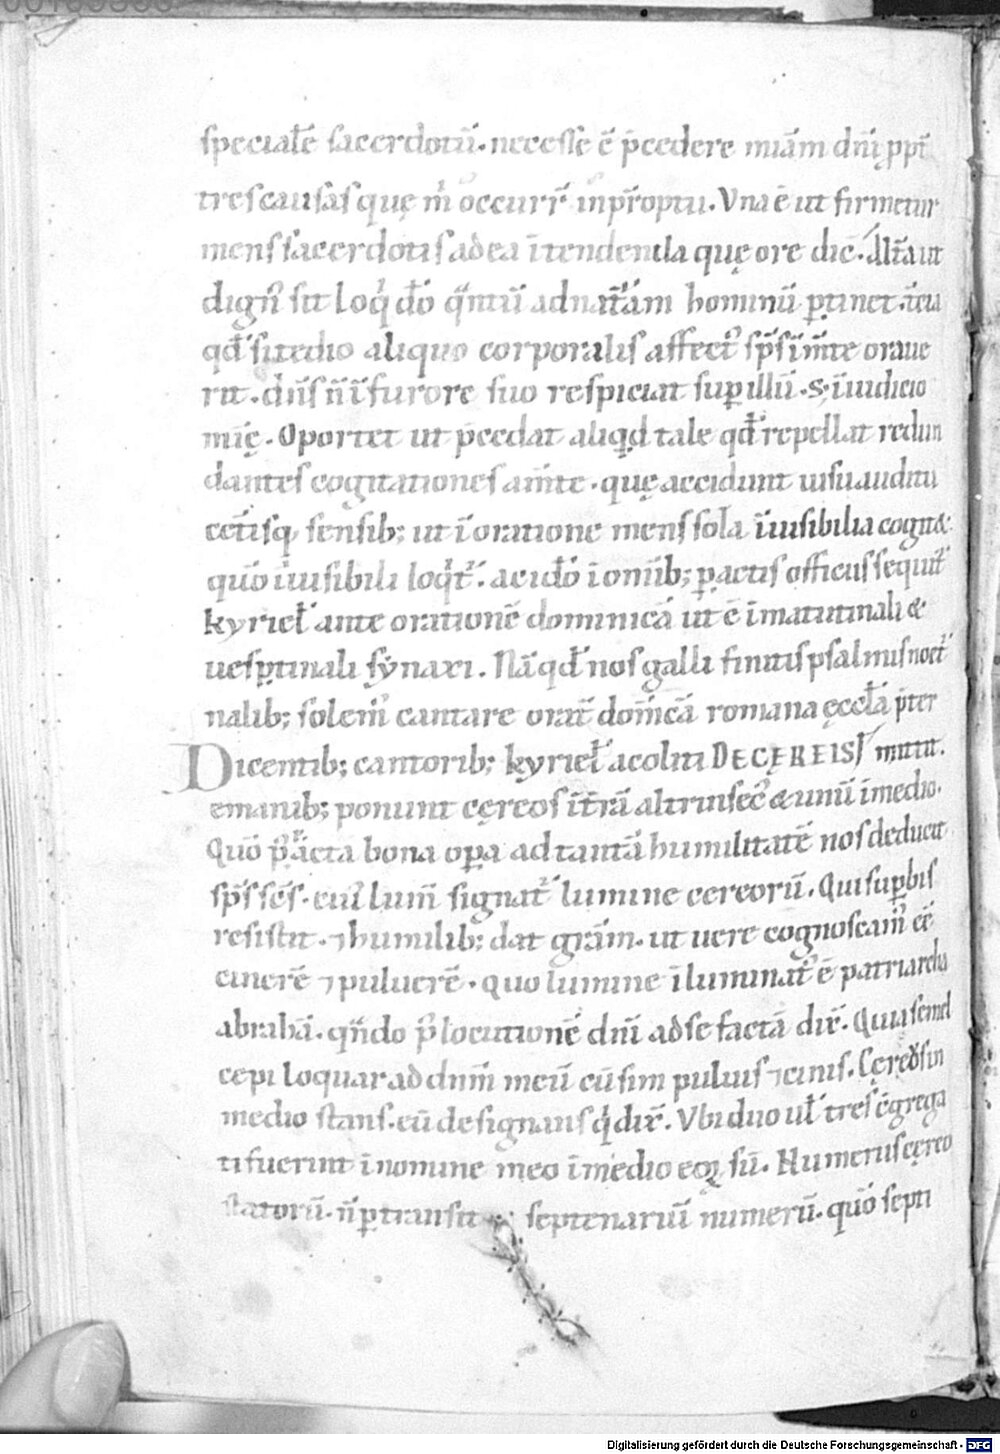 speciale͂ sacerdotū. necesse ē p̄cedere miā̄m dn̄i ꝓpt̄
tres causas quę m̄ occurr̄ inp̄roptu. Vna ē ut firmetur
mens sacerdotis ad ea ītendenda quę ore dic̄. Alt̄a ut
dign᷒ sit loq̇ do̅ q̄ntū ad nat̄ām hominū ꝑtinet.
qđ si tedio aliquo corporalis affect᷒ sp̄s ī m̄te oraue
rit. dn̄s n̄ ī furore suo respiciat suꝑ illū. s; ī iudicio
mīę. Oportet ut p̄cedat aliqd tale qđ repellat redun
dantes cogitationes a m̄te. quę accidunt uisu auditu
cet̄isq; sensib; ut ī oratione mens sola īuisibilia cogit&
quō īuisibili loq̇t᷑. ac ido̅ ī om̄ib; ꝑactis officiis sequit᷑
kyriel̄ ante orationē dominicā ut ē ī matutinali &
uesꝑtinali synaxi. Nā qđ nos galli finitis psalmis noct᷑
nalib; solem᷒ cantare orat̄ dom̄cā romana ęccl̄a p̄ter
Dicentib; cantorib; kyriel̄ acoliti DE CĘREIS mittit.
e manib; ponunt cęreos ī t̄rā altrinsec᷒ & unū ī medio.
Quō p᷒ ꝑacta bona oꝑa ad tantā humilitatē nos deducit
sp̄s sc̄s. cui᷒ lum̄ signat᷑ lumine cereorū. Qui suꝑbis
resistit. ⁊ humilib; dat grām. ut uere cognoscam᷒ ee̅
cinerē ⁊ puluerē. Quo lumine īluminat᷒ ē patriarcha
abrahā. qn̄do p᷒ locutionē dn̄i ad se factā dix̄. Quia semel
cepi loquar ad dn̄m meū cū sim puluis ⁊ cinis. Cęre᷒ s in
medio stans. eū designans q̇ dix̄. Vbi duo ul̄ tres c̄grega
ti fuerint ī nomine meo ī medio eoꝝ sū. Numerus cęreo
statorū. n̄ ꝑtransit septenariū numerū. quō septi